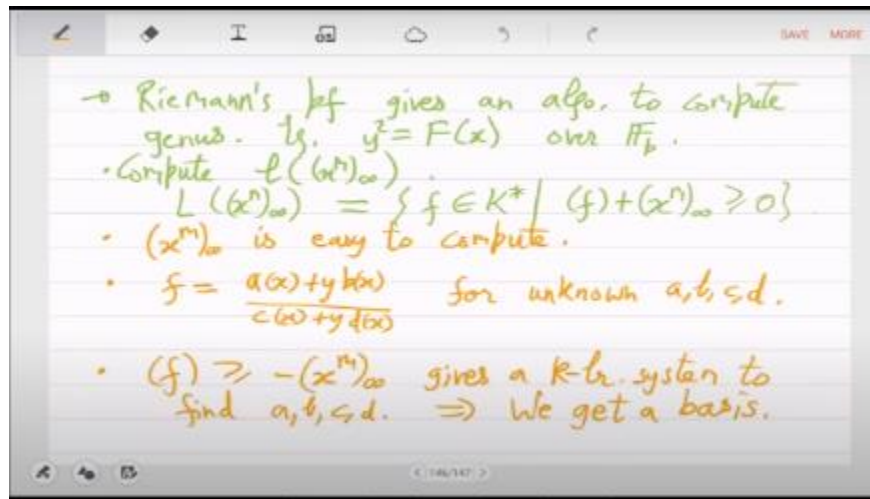 SAVE MORE
→ Riemann's pf gives an algo. to compute
genus. Eg. y² = F(x) over 𝔽ₚ.
· Compute ℓ((xⁿ)∞).
L((xⁿ)∞) = {f ∈ K* | (f)+(xⁿ)∞ ≥ 0}
· (xⁿ)∞ is easy to compute.
· f = (a(x)+y b(x))/(c(x)+y d(x)) for unknown a,b,c,d.
· (f) ≥ -(xⁿ)∞ gives a k-lr. system to
find a,b,c,d. ⇒ We get a basis.
< 146/147 >